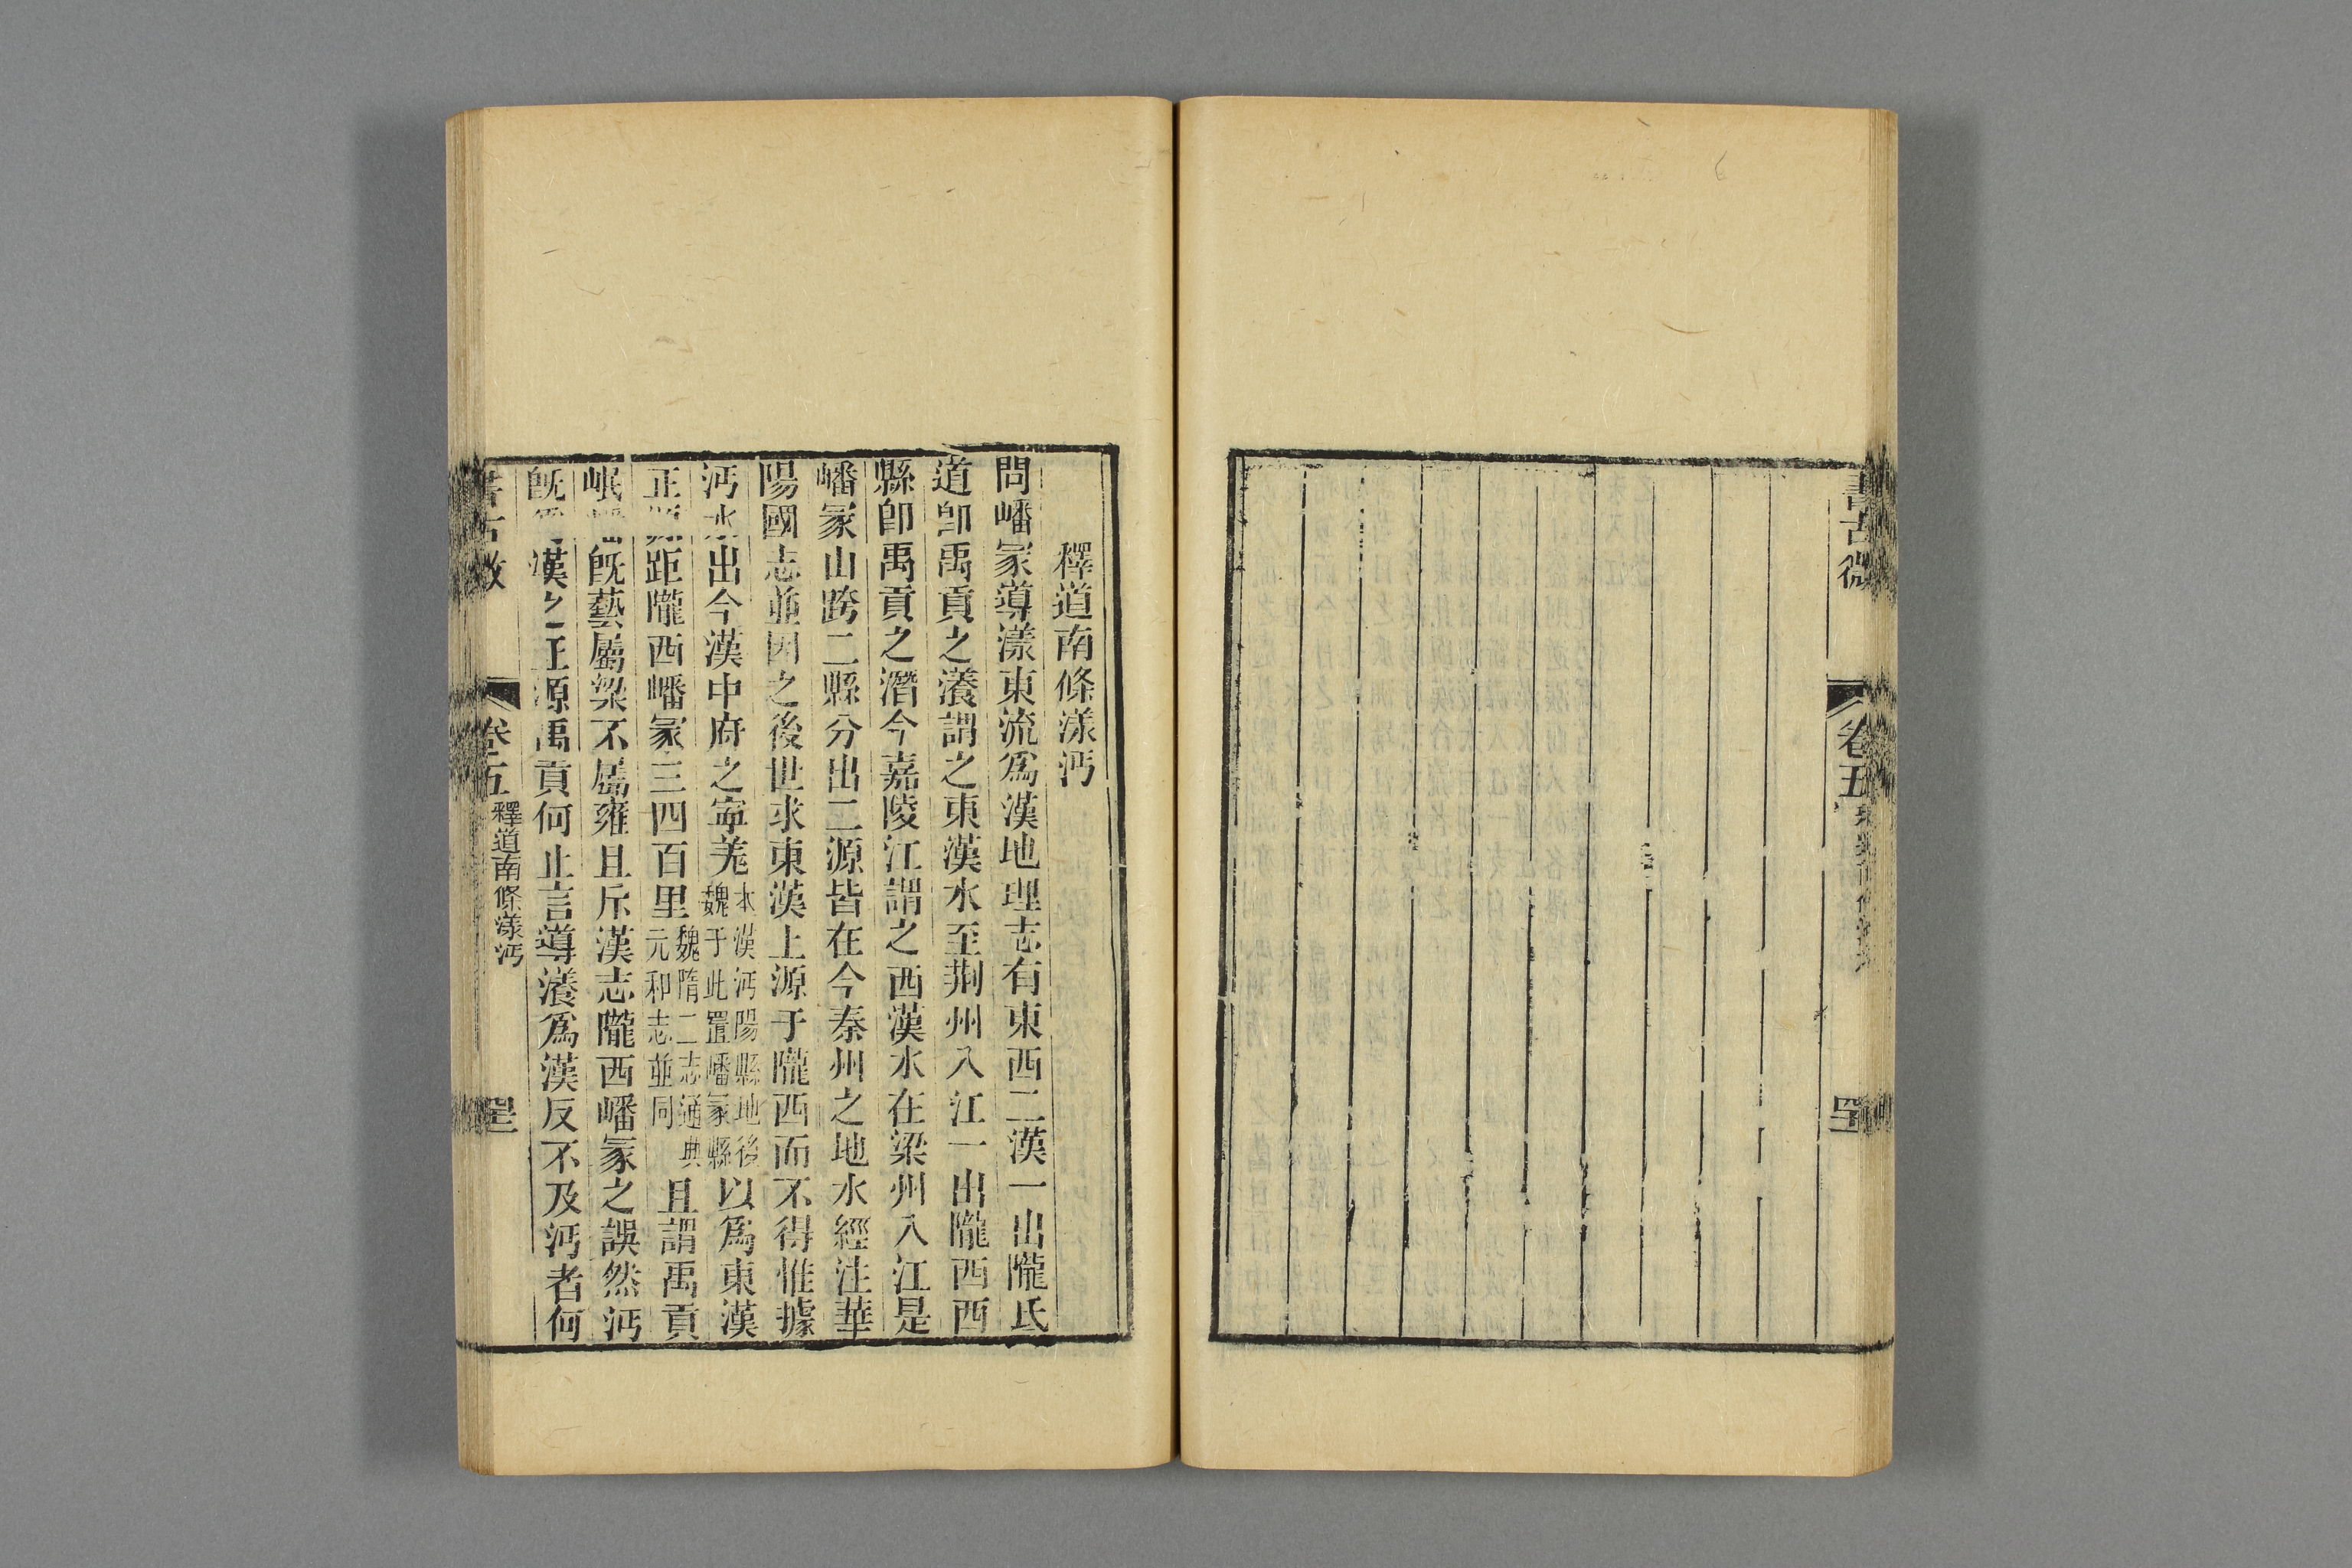 書古微
卷五
釋道南條漾沔
問嶓冢導漾東流爲漢地理志有東西二漢一出隴氐
道卽禹貢之瀁謂之東漢水至荆州入江一出隴西西
縣卽禹貢之潛今嘉陵江謂之西漢水在梁州入江是
嶓冢山跨二縣分出二源皆在今秦州之地水經注華
陽國志並因之後世求東漢上源于隴西而不得惟據
沔水出今漢中府之寧羌本漢沔陽縣地後魏于此置嶓冢縣以爲東漢
正源距隴西嶓冢三四百里魏隋二志通典元和志並同且謂禹貢
岷嶓旣藝屬梁不屬雍且斥漢志隴西嶓冢之誤然沔
旣爲漢之正源禹貢何止言導瀁爲漢反不及沔者何
書古微
卷五
釋道南條漾沔